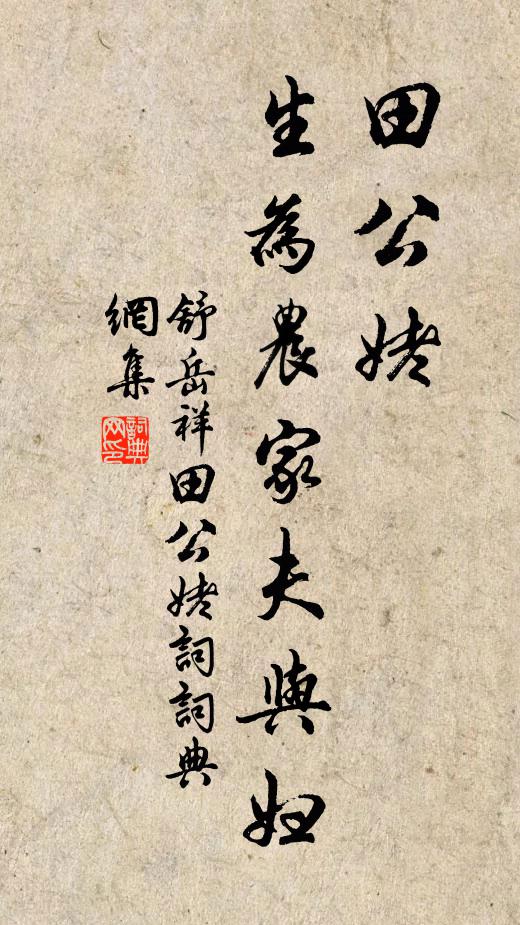 田公姥
生為農家夫與妇
舒岳祥田公姥詞詞典
網集
詞典
网印